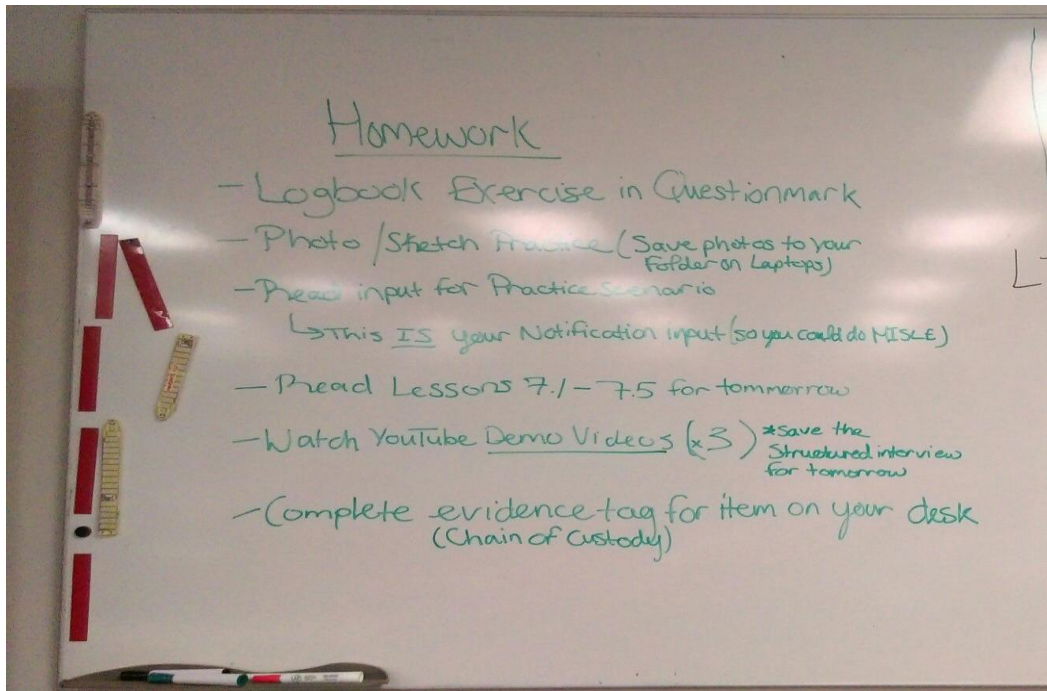 Homework
- Logbook Exercise in Questionmark
- Photo/Sketch Practice (Save photos to your
Folder on Laptops)
- Read input for Practice Scenario
↳ This IS your Notification input (so you could do MISLE)
- Read Lessons 7.1 - 7.5 for tommorrow
- Watch YouTube Demo Videos (x3) *Save the
Structured interview
for tomorrow
- Complete evidence tag for item on your desk
(Chain of Custody)